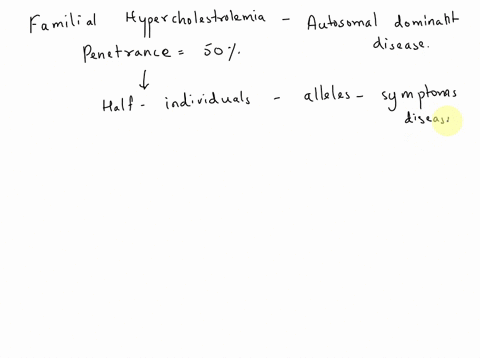 Familial Hypercholestrolemia - Autosomal dominant
disease.
Penetrance = 50%.
Half - individuals - alleles - symptoms
diseas